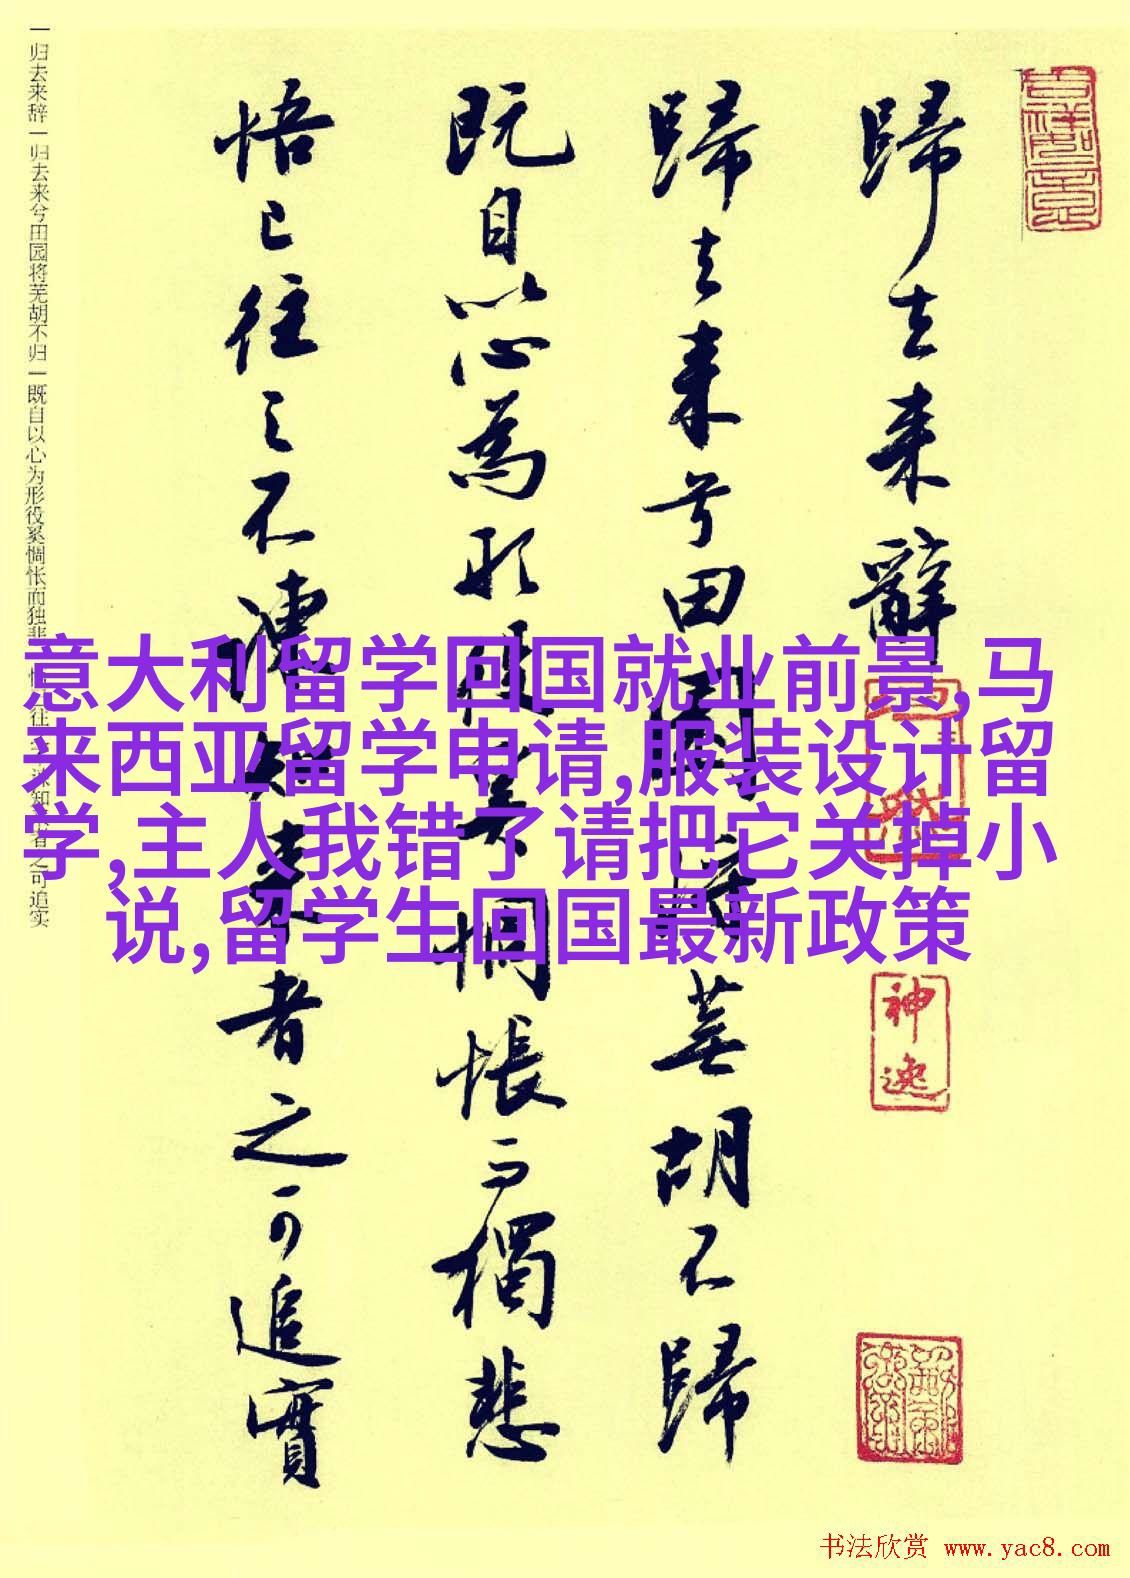 歸去来辭
歸去来兮田園将蕪胡不歸
既自以心為形役奚惆悵而獨悲
悟已往之不諫知来者之可追實
神逸
一归去来辞一归去来兮田园将芜胡不归一既自以心为形役奚惆怅而独悲
往
知
者之可追实
意大利留学回国就业前景,马
来西亚留学申请,服装设计留
学,主人我错了请把它关掉小
说,留学生回国最新政策
书法欣赏 www.yac8.com